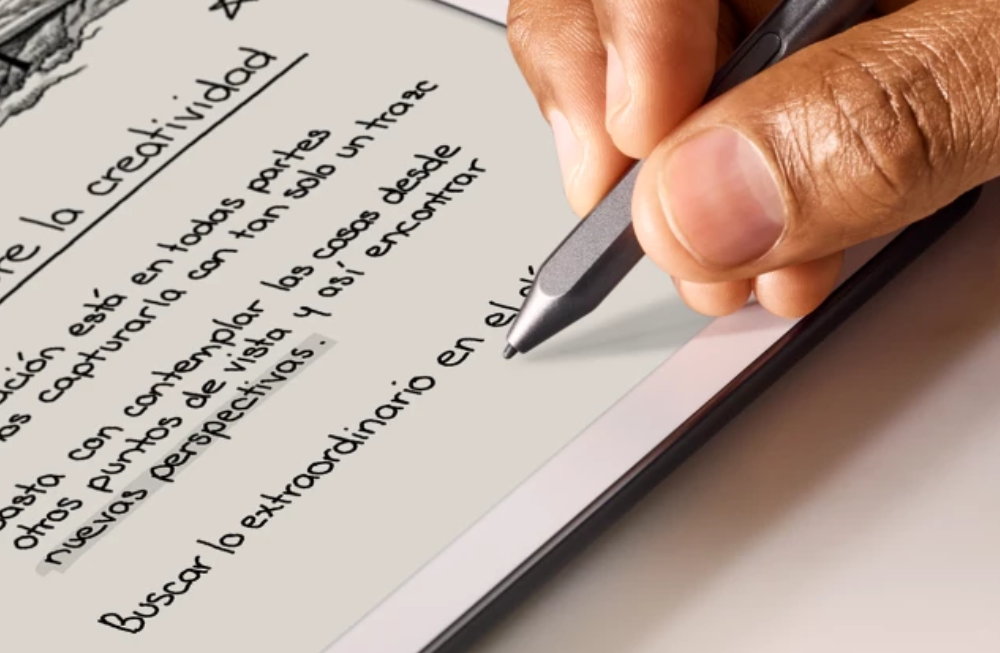 la creatividad
está en todas partes
capturarla con tan solo un
con contemplar las cosas desde
otros puntos de vista y así encontrar
nuevas perspectivas.
Buscar lo extraordinario en